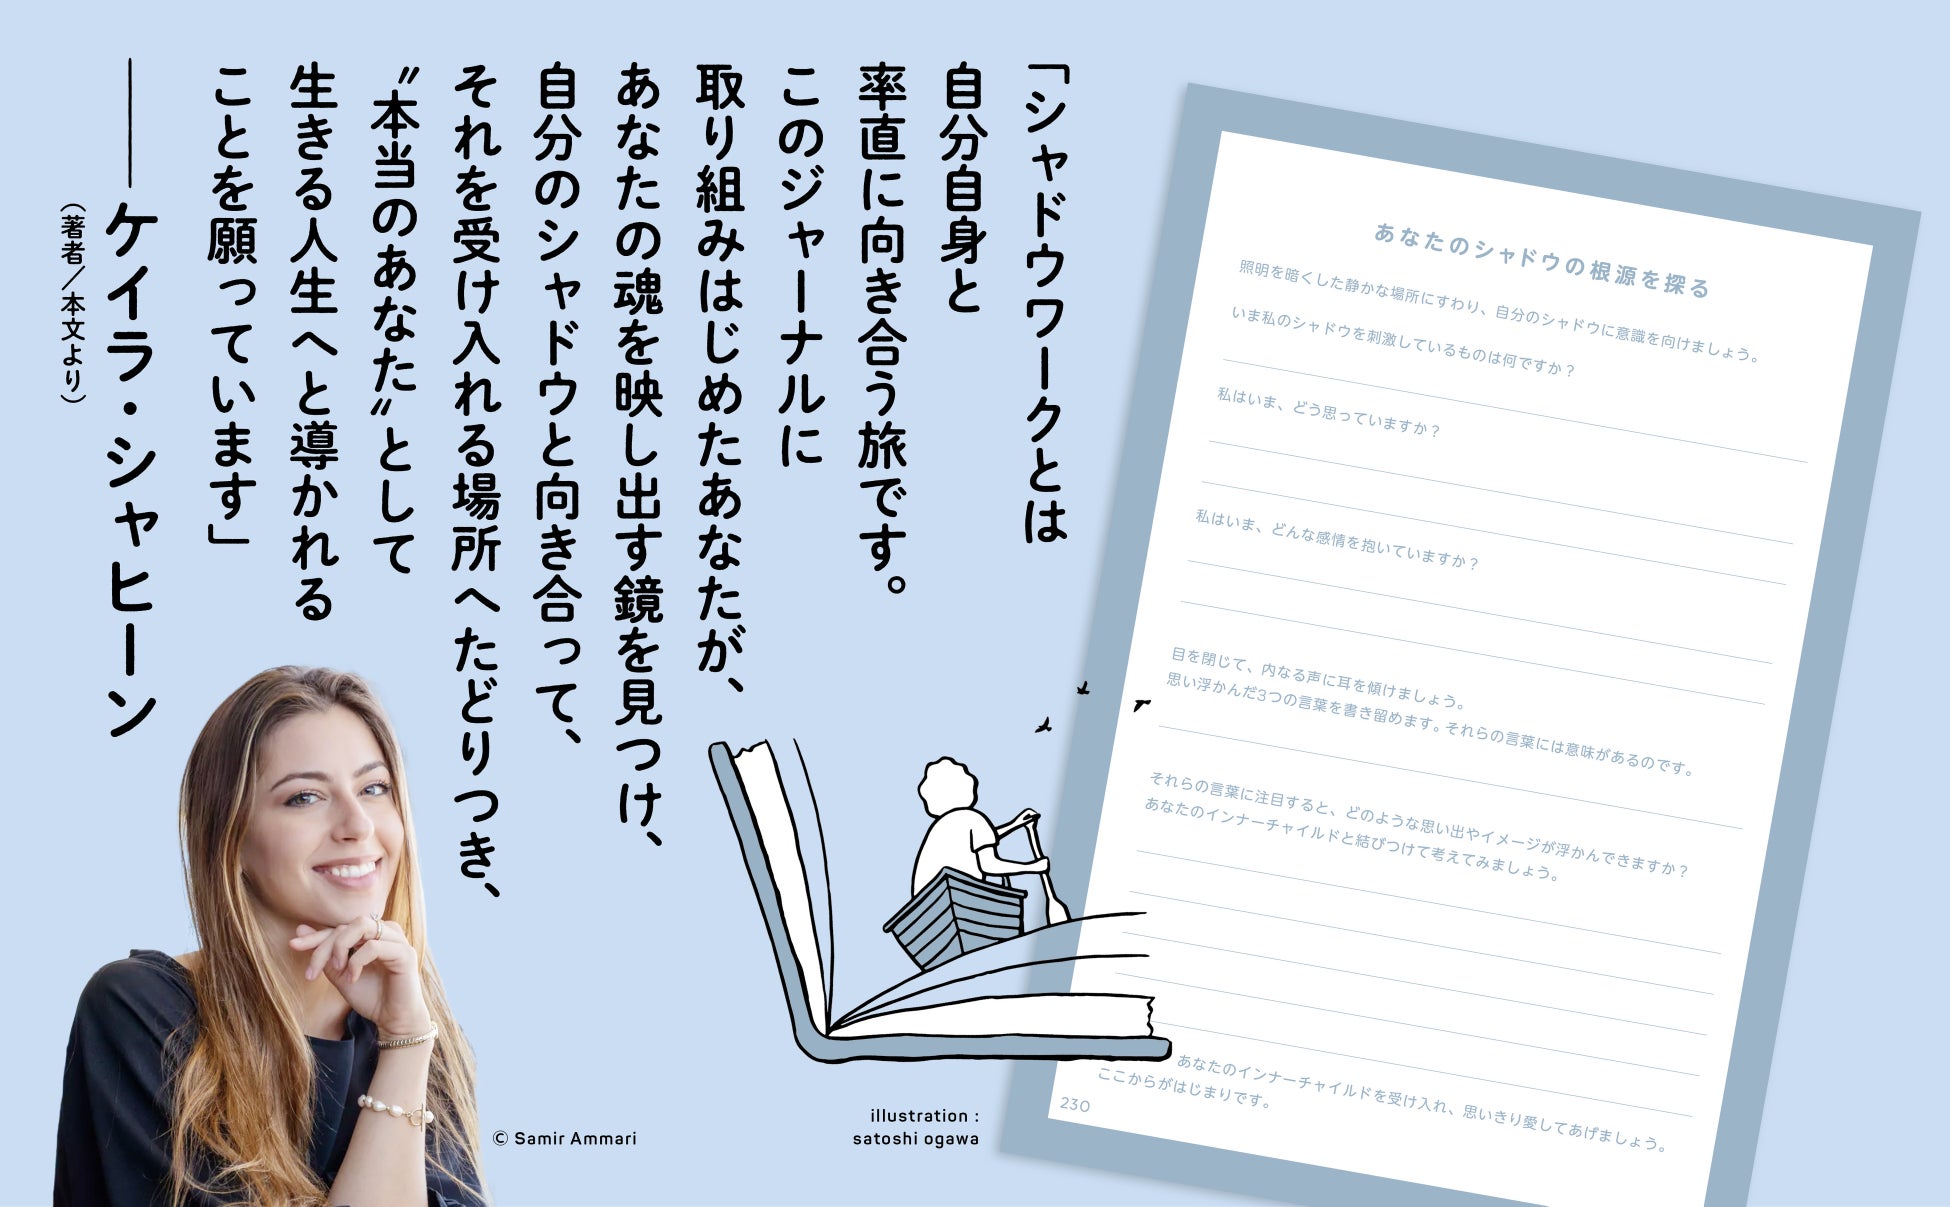 「シャドウワークとは
自分自身と
率直に向き合う旅です。
このジャーナルに
取り組みはじめたあなたが、
あなたの魂を映し出す鏡を見つけ、
自分のシャドウと向き合って、
それを受け入れる場所へたどりつき、
〝本当のあなた〟として
生きる人生へと導かれる
ことを願っています」
——ケイラ・シャヒーン
（著者／本文より）
あなたのシャドウの根源を探る
照明を暗くした静かな場所にすわり、自分のシャドウに意識を向けましょう。
いま私のシャドウを刺激しているものは何ですか？
私はいま、どう思っていますか？
私はいま、どんな感情を抱いていますか？
目を閉じて、内なる声に耳を傾けましょう。
思い浮かんだ3つの言葉を書き留めます。それらの言葉には意味があるのです。
それらの言葉に注目すると、どのような思い出やイメージが浮かんできますか？
あなたのインナーチャイルドと結びつけて考えてみましょう。
あなたのインナーチャイルドを受け入れ、思いきり愛してあげましょう。
ここからがはじまりです。
230
© Samir Ammari
illustration :
satoshi ogawa